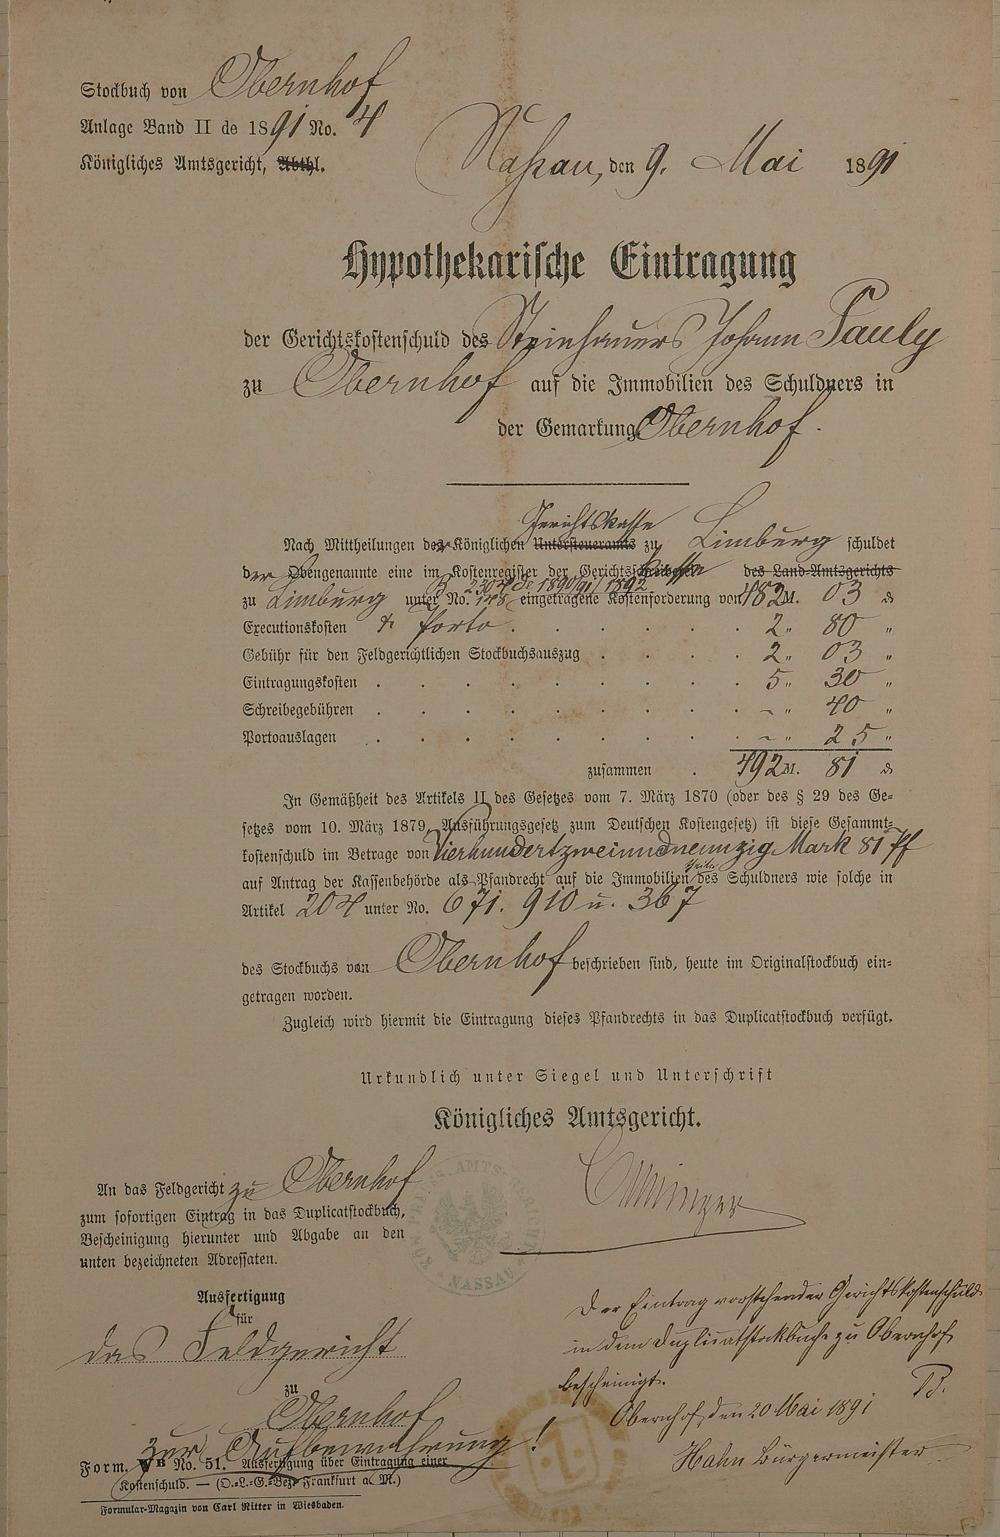 Stockbuch von Obernhof
Anlage Band II de 1891 No. 4
Königliches Amtsgericht, Abthl.
Nassau, den 9. Mai 1891
Hypothekarische Eintragung
der Gerichtskostenschuld des Steinhauers Johann Pauly
zu Obernhof auf die Immobilien des Schuldners in
der Gemarkung Obernhof.
Gerichtskasse
Nach Mittheilungen der Königlichen Untersteueramts zu Limburg schuldet
der Obengenannte eine im Kostenregister der Gerichtskasse des Land-Amtsgerichts
zu Limburg unter No. 148 eingetragene Kostenforderung von 482 M. 03 ₰
Executionskosten & Porto . . . . . . 2 „ 80 „
Gebühr für den Feldgerichtlichen Stockbuchsauszug . . . . 2 „ 03 „
Eintragungskosten . . . . . . . . . 5 „ 30 „
Schreibegebühren . . . . . . . . . ~ „ 40 „
Portoauslagen . . . . . . . . . ~ „ 25 „
zusammen . 492 M. 81 ₰
In Gemäßheit des Artikels II des Gesetzes vom 7. März 1870 (oder des § 29 des Ge-
setzes vom 10. März 1879, Ausführungsgesetz zum Deutschen Kostengesetz) ist diese Gesammt-
kostenschuld im Betrage von Vierhundertzweiundneunzig Mark 81 Pf
auf Antrag der Kassenbehörde als Pfandrecht auf die Immobilien des Schuldners wie solche in
Artikel 204 unter No. 671. 910 u. 367
des Stockbuchs von Obernhof beschrieben sind, heute im Originalstockbuch ein-
getragen worden.
Zugleich wird hiermit die Eintragung dieses Pfandrechts in das Duplicatstockbuch verfügt.
Urkundlich unter Siegel und Unterschrift
Königliches Amtsgericht.
An das Feldgericht zu Obernhof
zum sofortigen Eintrag in das Duplicatstockbuch,
Bescheinigung hierunter und Abgabe an den
unten bezeichneten Adressaten.
NASSAU
Ausfertigung
für
das Feldgericht
zu
Obernhof
zur Aufbewahrung!
Form. No. 51. Ausfertigung über Eintragung einer
Kostenschuld. — (O.-L.-G.-Bez. Frankfurt a. M.)
Formular-Magazin von Carl Ritter in Wiesbaden.
Der Eintrag vorstehender Gerichtskostenschuld
in dem Duplicatstockbuche zu Obernhof
bescheinigt.
Obernhof, den 20 Mai 1891
Hahn Bürgermeister